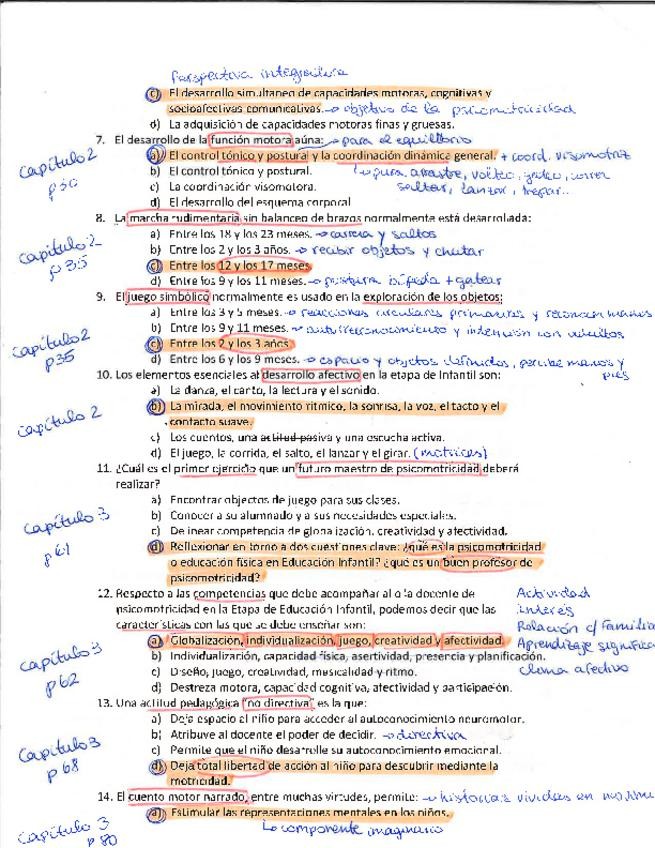 Perspectiva integradora
c) El desarrollo simultaneo de capacidades motoras, cognitivas y
socioafectivas comunicativas. → objetivo de la psicomotricidad
d) La adquisición de capacidades motoras finas y gruesas.
7. El desarrollo de la función motora aúna: → para el equilibrio
Capítulo 2
p 30
a) El control tónico y postural y la coordinación dinámica general. + coord. visomotriz
b) El control tónico y postural. → pura, arrastre, volteo, gateo, correr
c) La coordinación visomotora. saltar, lanzar, trepar...
d) El desarrollo del esquema corporal
8. La marcha rudimentaria sin balanceo de brazos normalmente está desarrollada:
Capítulo 2
p 35
a) Entre los 18 y los 23 meses. → carrera y saltos
b) Entre los 2 y los 3 años. → recibir objetos y chutar
c) Entre los 12 y los 17 meses.
d) Entre los 9 y los 11 meses. → postura bípeda + gatear
9. El juego simbólico normalmente es usado en la exploración de los objetos:
Capítulo 2
p35
a) Entre los 3 y 5 meses. → reacciones circulares primarias y reconocen manos
b) Entre los 9 y 11 meses. → autorreconocimiento y intención con adultos
c) Entre los 2 y los 3 años.
d) Entre los 6 y los 9 meses. → espacio y objetos definidos, percibe manos y
pies
10. Los elementos esenciales al desarrollo afectivo en la etapa de Infantil son:
Capítulo 2
a) La danza, el canto, la lectura y el sonido.
b) La mirada, el movimiento rítmico, la sonrisa, la voz, el tacto y el
contacto suave.
c) Los cuentos, una actitud pasiva y una escucha activa.
d) El juego, la corrida, el salto, el lanzar y el girar. (motrices)
11. ¿Cuál es el primer ejercicio que un futuro maestro de psicomotricidad deberá
realizar?
Capítulo 3
p 61
a) Encontrar objectos de juego para sus clases.
b) Conocer a su alumnado y a sus necesidades especiales.
c) Delinear competencia de globalización, creatividad y afectividad.
d) Reflexionar en torno a dos cuestiones clave: ¿qué es la psicomotricidad
o educación física en Educación Infantil? ¿qué es un buen profesor de
psicomotricidad?
12. Respecto a las competencias que debe acompañar al o la docente de
psicomotricidad en la Etapa de Educación Infantil, podemos decir que las
características con las que se debe enseñar son:
Actividad
interés
Relación c/ familia
Aprendizaje significa
clima afectivo
Capítulo 3
p 62
a) Globalización, individualización, juego, creatividad y afectividad.
b) Individualización, capacidad física, asertividad, presencia y planificación.
c) Diseño, juego, creatividad, musicalidad y ritmo.
d) Destreza motora, capacidad cognitiva, afectividad y participación.
13. Una actitud pedagógica "no directiva" es la que:
Capítulo 3
p 68
a) Deja espacio el niño para acceder al autoconocimiento neuromotor.
b) Atribuye al docente el poder de decidir. → directiva
c) Permite que el niño desarrolle su autoconocimiento emocional.
d) Deja total libertad de acción al niño para descubrir mediante la
motricidad.
14. El cuento motor narrado, entre muchas virtudes, permite: → historias vividas en
Capítulo 3
p 80
a) Estimular las representaciones mentales en los niños.
↳ componente imaginario